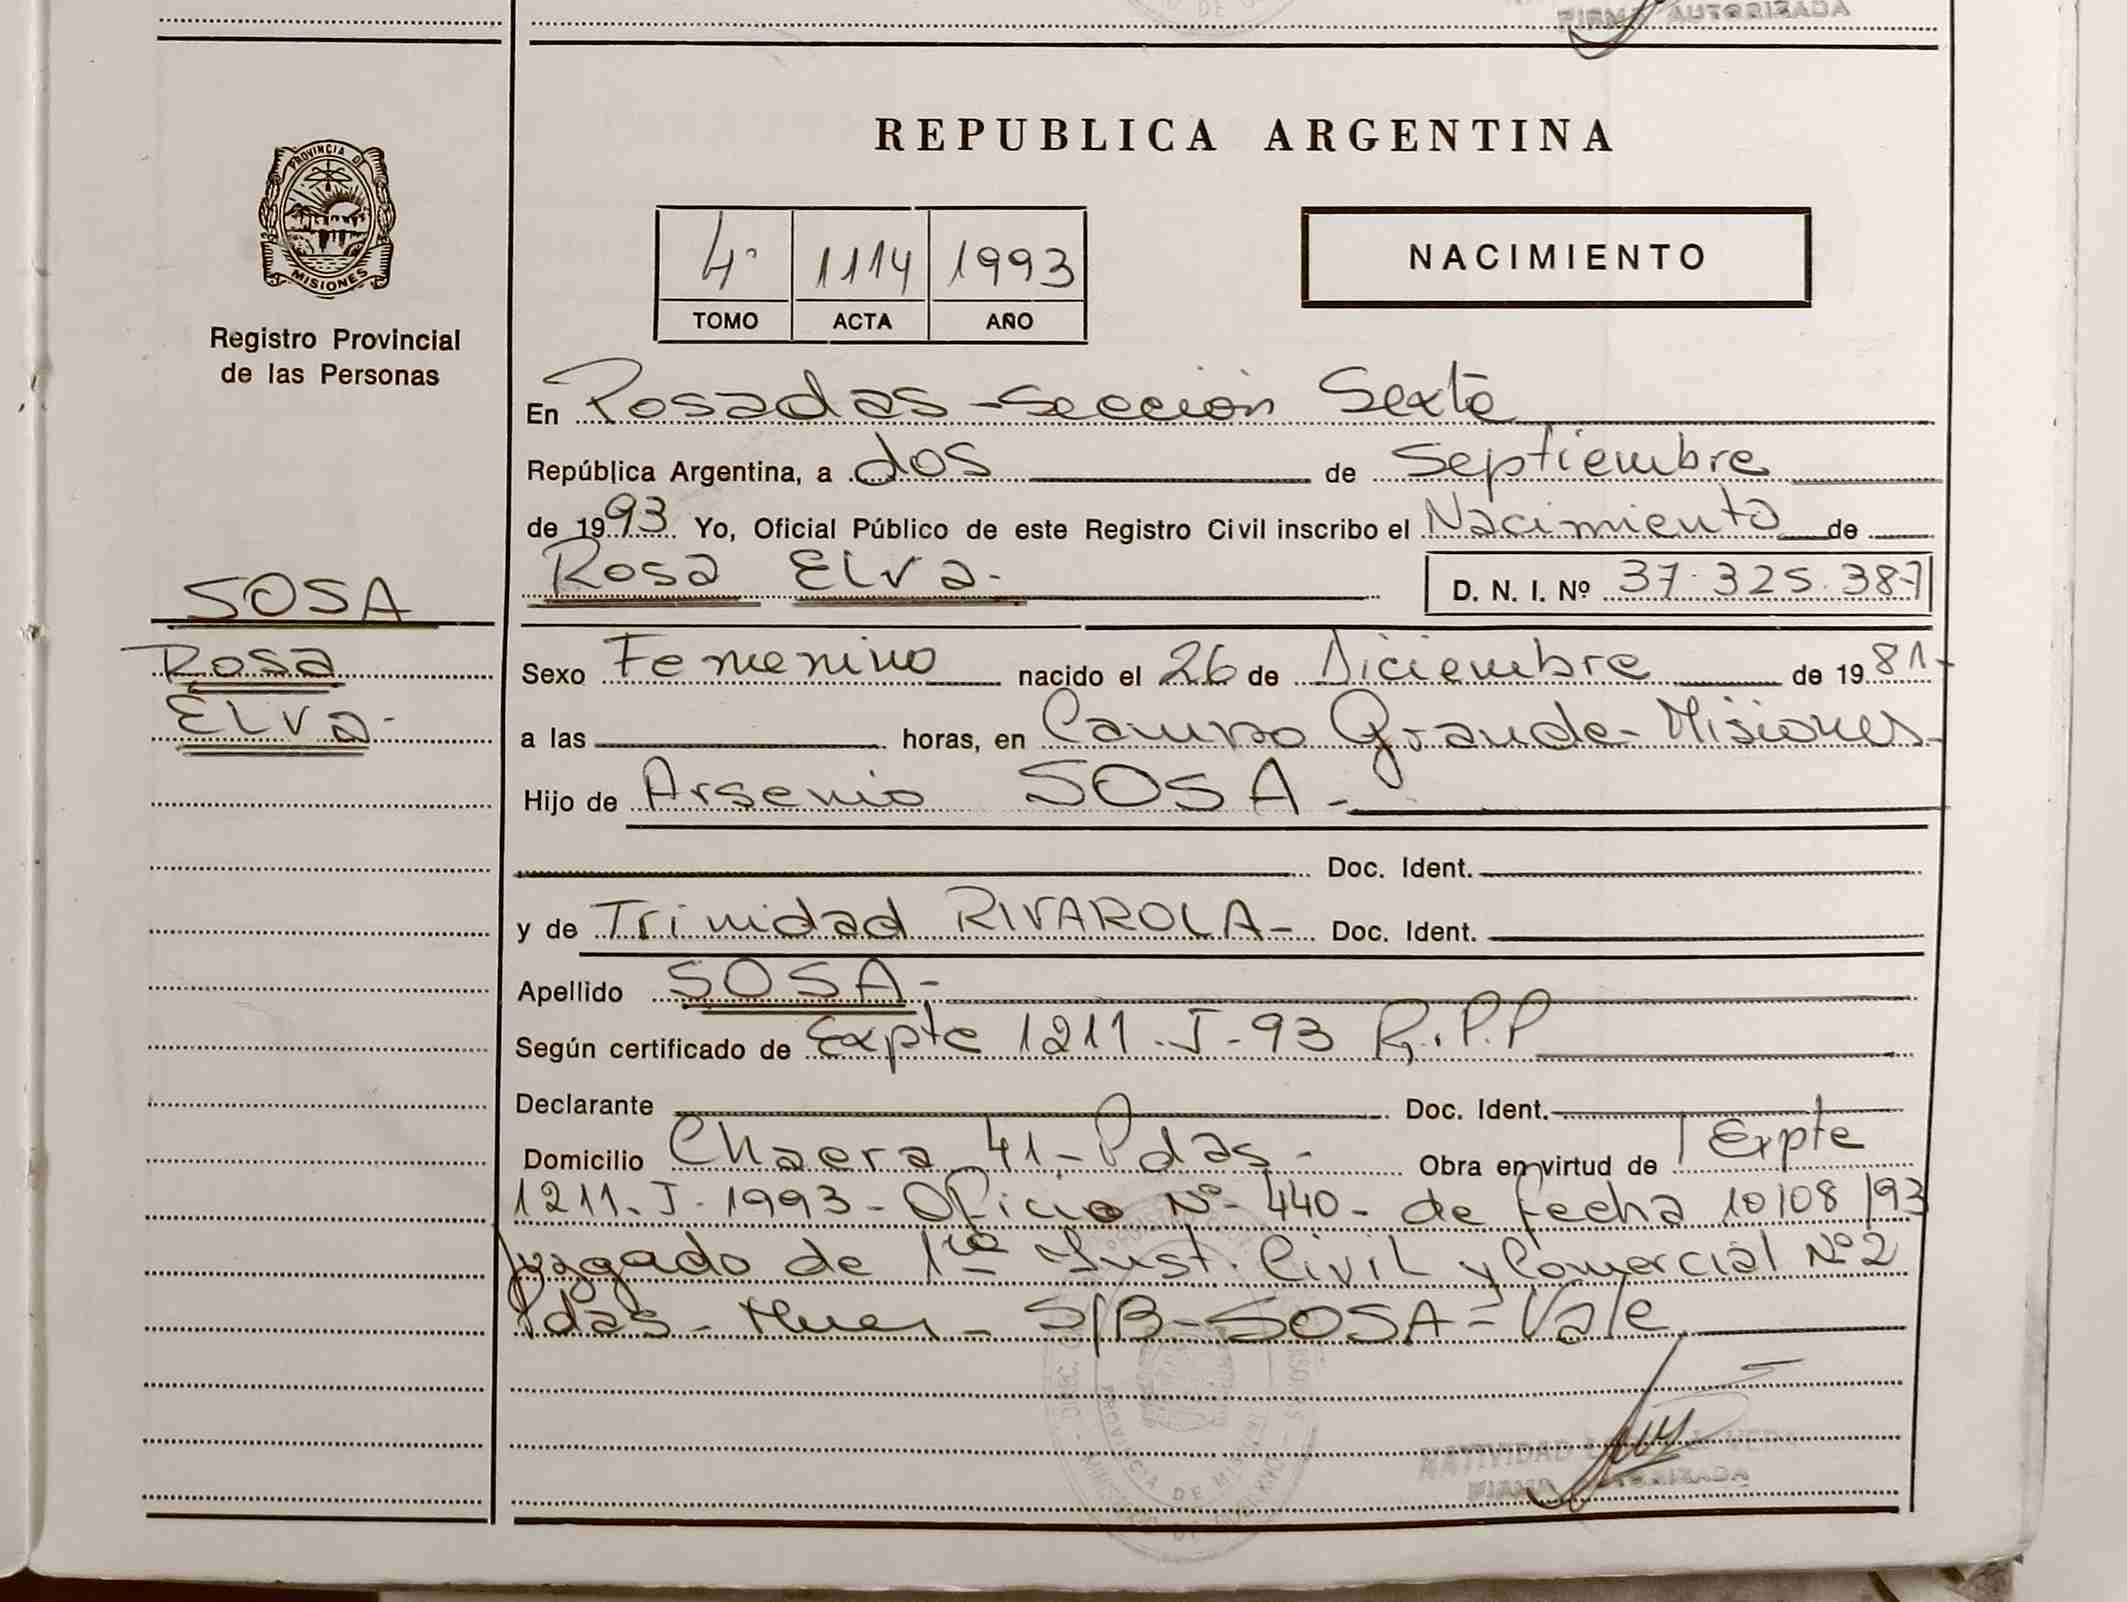 FIRMA AUTORIZADA
REPUBLICA ARGENTINA
PROVINCIA DE
MISIONES
Registro Provincial
de las Personas
4º 1114 1993
TOMO ACTA AÑO
NACIMIENTO
En Posadas - Sección Sexta
República Argentina, a dos de Septiembre
de 1993 Yo, Oficial Público de este Registro Civil inscribo el Nacimiento de
Rosa Elva - D. N. I. Nº 37.325.387
SOSA
Rosa
Elva -
Sexo Femenino nacido el 26 de Diciembre de 1981 -
a las horas, en Campo Grande - Misiones -
Hijo de Arsenio SOSA -
Doc. Ident.
y de Trinidad RIVAROLA - Doc. Ident.
Apellido SOSA -
Según certificado de Expte 1211 - J - 93 R.P.P
Declarante Doc. Ident.
Domicilio Chacra 41 - Pdas - Obra en virtud de Expte
1211 - J - 1993 - Oficio Nº 440 - de fecha 10/08/93
Juzgado de 1ra Inst. Civil y Comercial Nº 2
Pdas - S/B - SOSA = Vale
PROVINCIA DE
NATIVIDAD
FIRMA AUTORIZADA